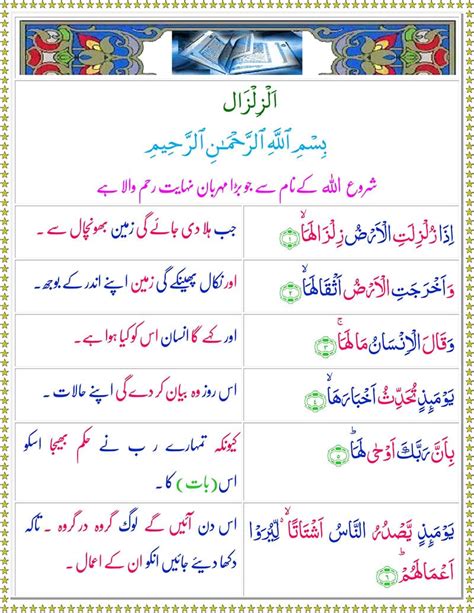 اَلزِّلْزَال
بِسْمِ ٱللَّهِ ٱلرَّحْمَـٰنِ ٱلرَّحِيمِ
شروع اللہ کے نام سے جو بڑا مہربان نہایت رحم والا ہے
اِذَا زُلْزِلَتِ الْاَرْضُ زِلْزَالَهَاۙ ﴿۱﴾
جب ہلا دی جائے گی زمین بھونچال سے ۔
وَاَخْرَجَتِ الْاَرْضُ اَثْقَالَهَاۙ ﴿۲﴾
اور نکال پھینکے گی زمین اپنے اندر کے بوجھ۔
وَقَالَ الْاِنْسَانُ مَا لَهَاۚ ﴿۳﴾
اور کہے گا انسان اس کو کیا ہوا ہے۔
يَوْمَىِٕذٍ تُحَدِّثُ اَخْبَارَهَاۙ ﴿۴﴾
اس روز وہ بیان کر دے گی اپنے حالات ۔
بِاَنَّ رَبَّكَ اَوْحٰى لَهَاؕ ﴿۵﴾
کیونکہ تمہارے رب نے حکم بھیجا اسکو
اس (بات) کا ۔
يَوْمَىِٕذٍ يَّصْدُرُ النَّاسُ اَشْتَاتًا ۙ لِّيُرَوْا
اَعْمَالَهُمْؕ ﴿۶﴾
اس دن آئیں گے لوگ گروہ در گروہ ۔ تاکہ
دکھا دیئے جائیں انکو ان کے اعمال ۔